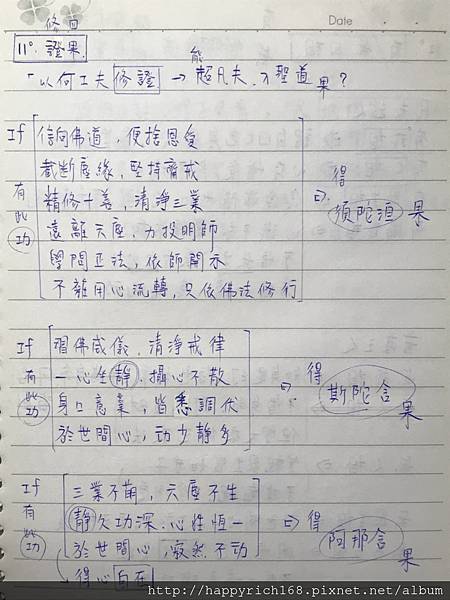 Date
修因
11°. 證果.
「以何工夫修證 → 能超凡夫.入聖道果？
If 有此功
信向佛道，便捨恩愛
截斷塵緣，堅持齋戒
精修十善，清淨三業
遠離六塵，力投明師
學問正法，依師開示
不離用心流轉，只依佛法修行
⇨ 得 須陀洹 果
If 有此功
習佛威儀．清淨戒律
一心生靜，攝心不散
身口意業，皆悉調伏
於世間心，動少靜多
⇨ 得 斯陀含 果
If 有此功
三業不萌，六塵不生
靜久功深．心性恒一
於世間心，寂然不動
⇨ 得 阿那含 果
得心自在
http://happyrich168.pixnet.net/album